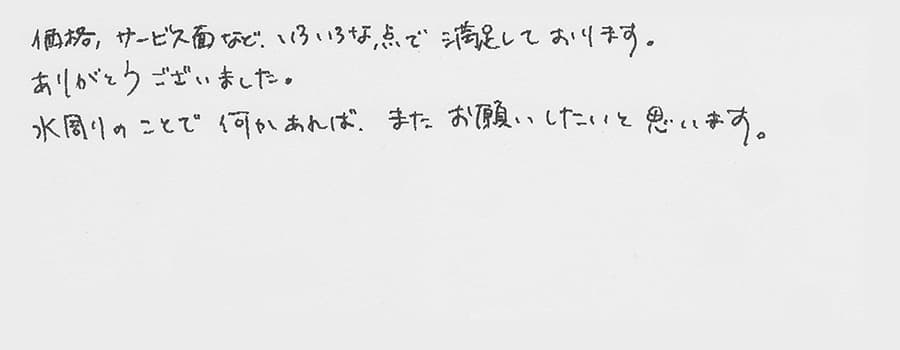 価格，サービス面など、いろいろな点で満足しております。
ありがとうございました。
水周りのことで何かあれば、またお願いしたいと思います。